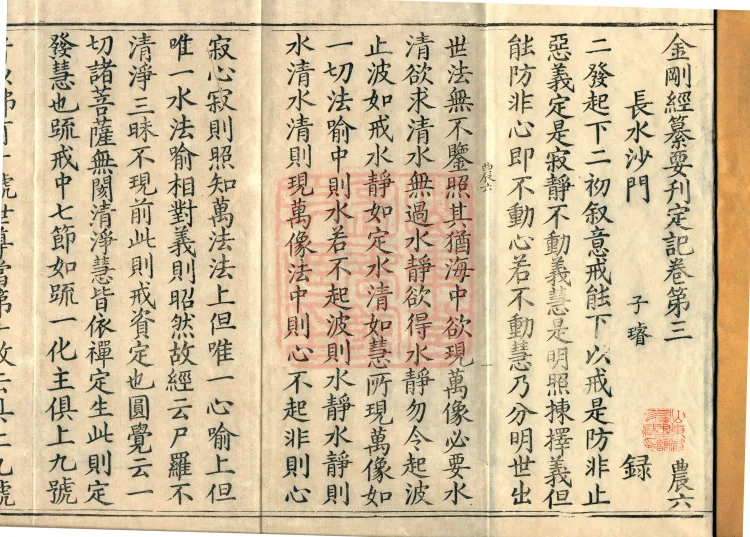 金剛經纂要刊定記卷第三
農六
長水沙門 子璿 録
二發起下二初叙意戒能下以戒是防非止
惡義定是寂靜不動義慧是明照揀擇義但
能防非心即不動心若不動慧乃分明世出
農六
世法無不鑒照其猶海中欲現萬像必要水
清欲求清水無過水靜欲得水靜勿令起波
止波如戒水靜如定水清如慧所現萬像如
一切法喻中則水若不起波則水靜水靜則
水清水清則現萬像法中則心不起非則心
寂心寂則照知萬法法上但唯一心喻上但
唯一水法喻相對義則昭然故經云尸羅不
清淨三昧不現前此則戒資定也圓覺云一
切諸菩薩無閡清淨慧皆依禪定生此則定
發慧也䟽戒中七節如䟽一化主俱上九號